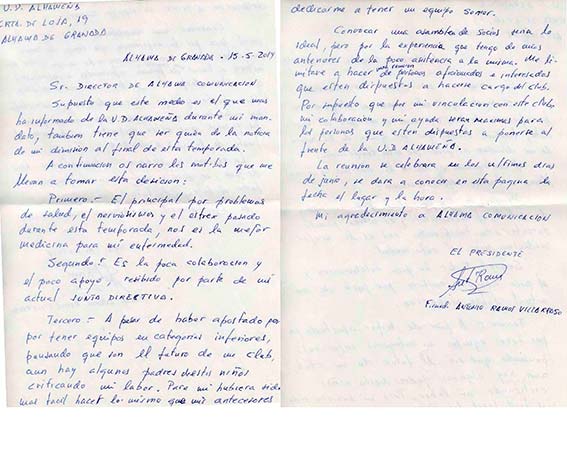 U.D. ALHAMEÑA
CRTA. DE LOJA, 19
ALHAMA DE GRANADA
ALHAMA DE GRANADA - 15-5-2014
Sr. DIRECTOR DE ALHAMA COMUNICACION
Supuesto que este medio es el que mas
ha informado de la U.D. ALHAMEÑA durante mi man-
dato, tambien tiene que ser guia de la noticia
de mi dimision al final de esta temporada.
A continuacion os narro los motibos que me
llevan a tomar esta decicion:
Primero.- El principal por problemas
de salud, el nerviosismo y el estrex pasado
durante esta temporada, nos es la mejor
medicina para mi enfermedad.
Segundo.- Es la poca colaboracion y
el poco apoyo, recibido por parte de mi
actual JUNTA DIRECTIVA.
Tercero.- A pesar de haber apostado por
por tener equipos en categorias inferiores,
pensando que son el futuro de mi club,
aun hay algunos padres de estos niños
criticando mi labor. Para mi hubiera sido
mas facil hacer lo mismo que mis antecesores
dedicarme a tener un equipo senior.
Convocar una asamblea de socios seria lo
ideal, pero por la experiencia que tengo de años
anteriores de la poca asistencia a la misma. Me li-
mitare a hacer una reunion de personas aficionados e interesados
que esten dispuestos a hacerse cargo del club.
Por supuesto que por mi vinculacion con este club,
mi colaboracion y mi ayuda seran maximas para
las personas que esten dispuestos a ponerse al
frente de la U.D. ALHAMEÑA.
La reunion se celebrara en los ultimos dias
de junio, se dara a conocer en esta pagina la
fecha el lugar y la hora.
Mi agredecimiento a ALHAMA COMUNICACION
EL PRESIDENTE
ANTONIO RAMOS VILLARROSO